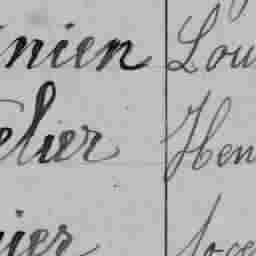 nien Lou
elier Hen
ier Joce